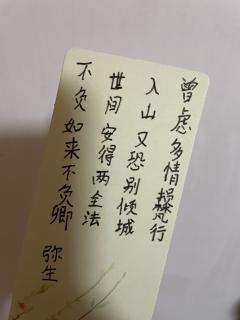 曾虑多情损梵行
入山又恐别倾城
世间安得两全法
不负如来不负卿
弥生